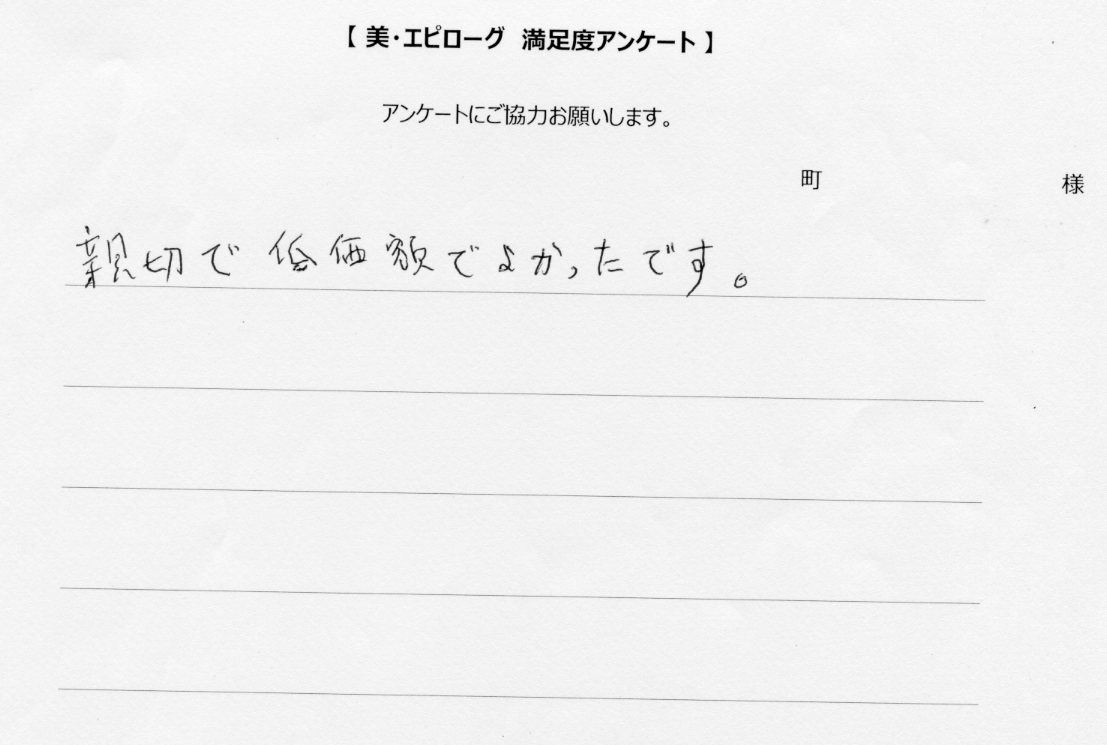 【 美・エピローグ 満足度アンケート 】
アンケートにご協力お願いします。
町 様
親切で低価額でよかったです。